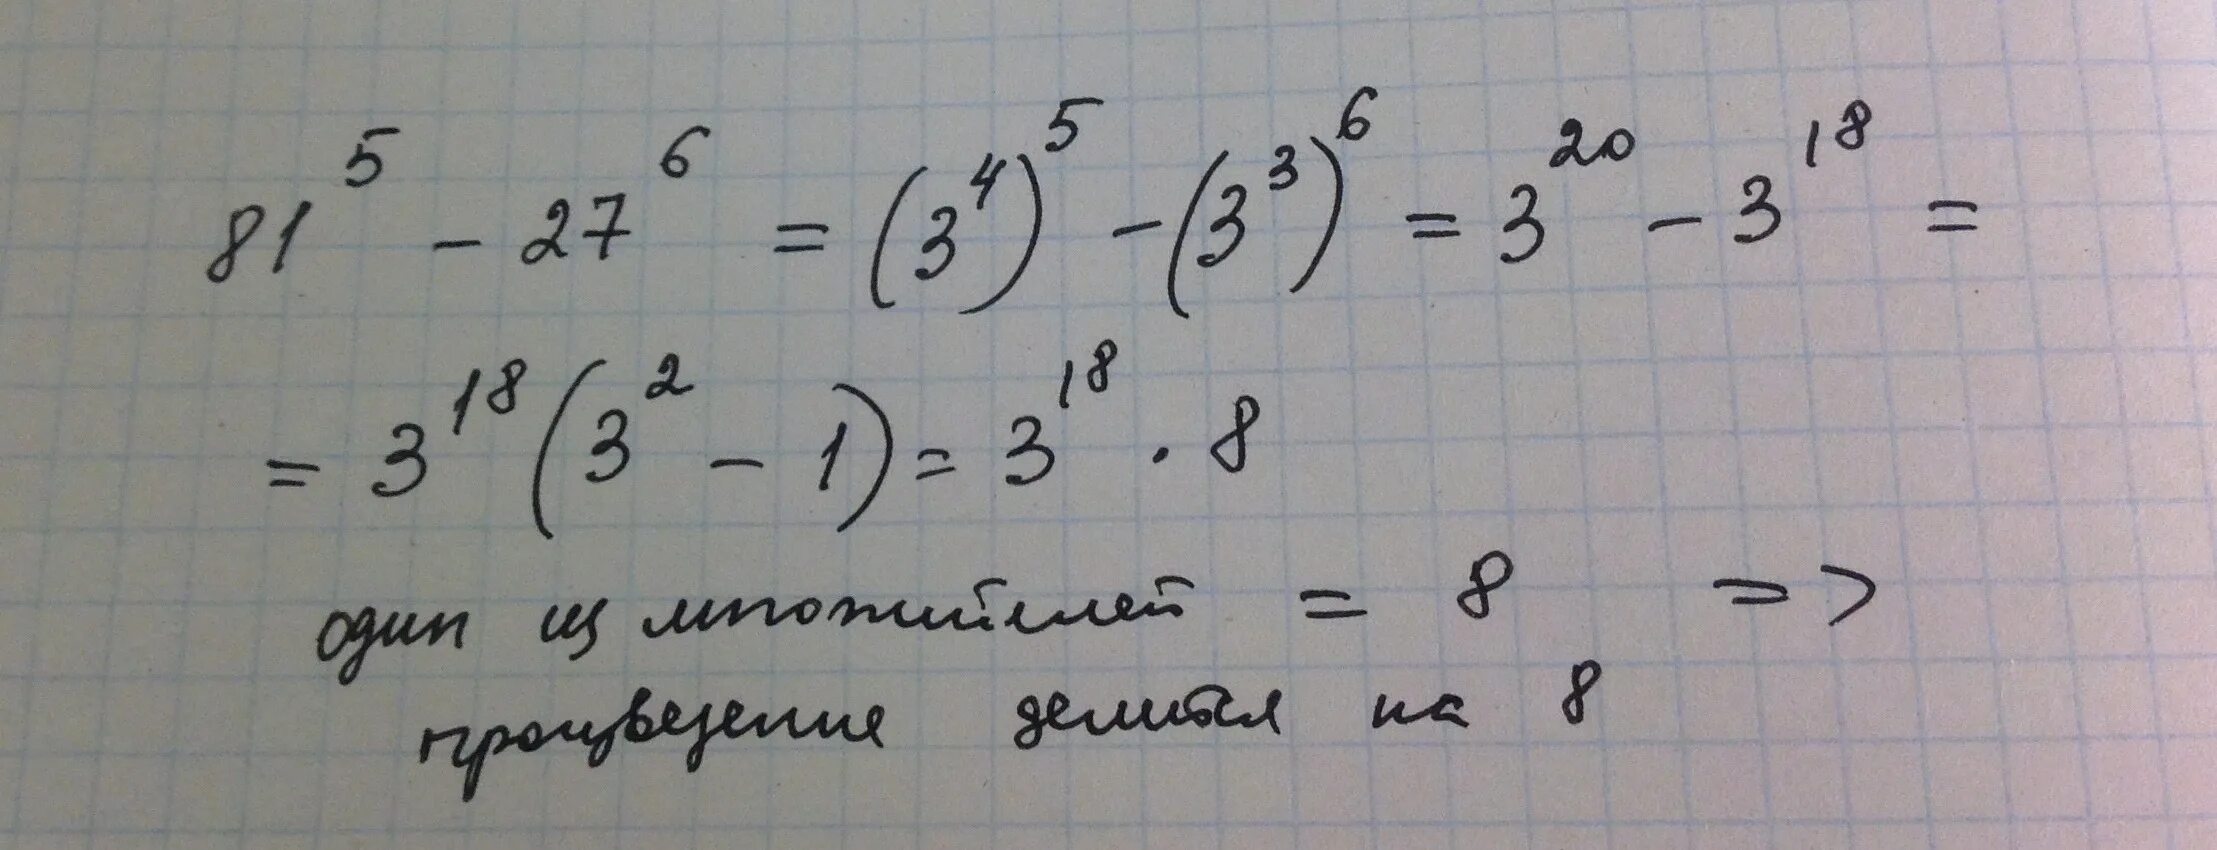 81⁵ - 27⁶ = (3⁴)⁵ - (3³)⁶ = 3²⁰ - 3¹⁸ =
= 3¹⁸ (3² - 1) = 3¹⁸ · 8
один из множителей = 8 =>
произведение делится на 8